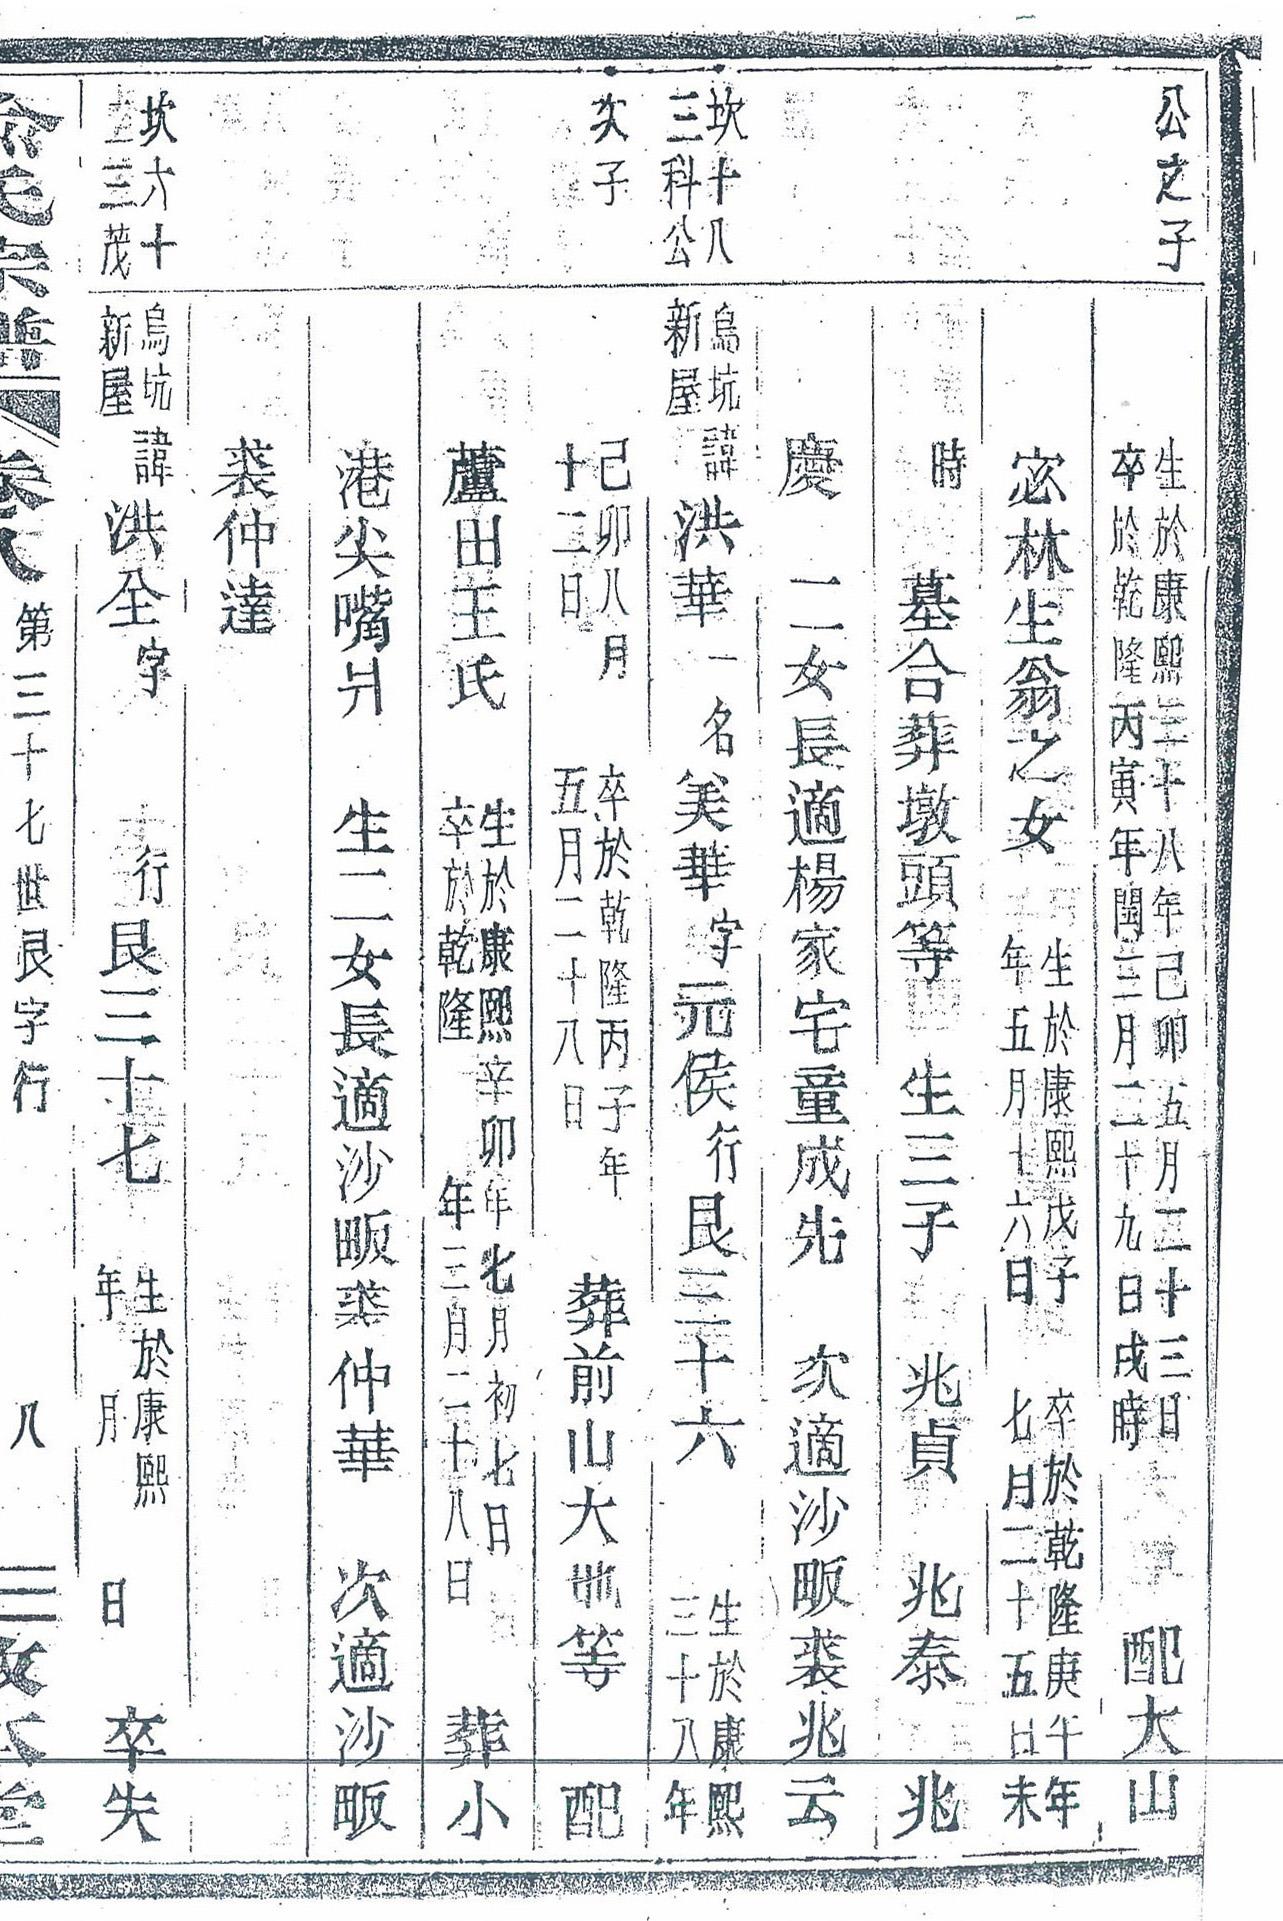 公之子
生於康熙三十八年己卯五月二十三日
卒於乾隆丙寅年閏三月二十九日戌時
配大山
宓林生翁之女
生於康熙戊子
年五月十六日
卒於乾隆庚午年
七月二十五日未
時
墓合葬墩頭等
生三子
兆貞
兆泰
兆
慶
二女長適楊家宅童成先
次適沙畈裘兆云
坎十八
三科公
烏坑
新屋
諱洪華
一名美華字元侯行艮三十六
生於康熙
三十八年
次子
己卯八月
十二日
卒於乾隆丙子年
五月二十八日
葬前山大等
配
蘆田王氏
生於康熙辛卯年七月初七日
卒於乾隆
年三月二十八日
葬小
港尖嘴爿
生二女長適沙畈裘仲華
次適沙畈
裘仲達
坎六十
三茂
烏坑
新屋
諱洪全字
行艮三十七
生於康熙
年
月
日
卒失
俞氏宗譜
卷八
第三十七世艮字行
八
三政公堂